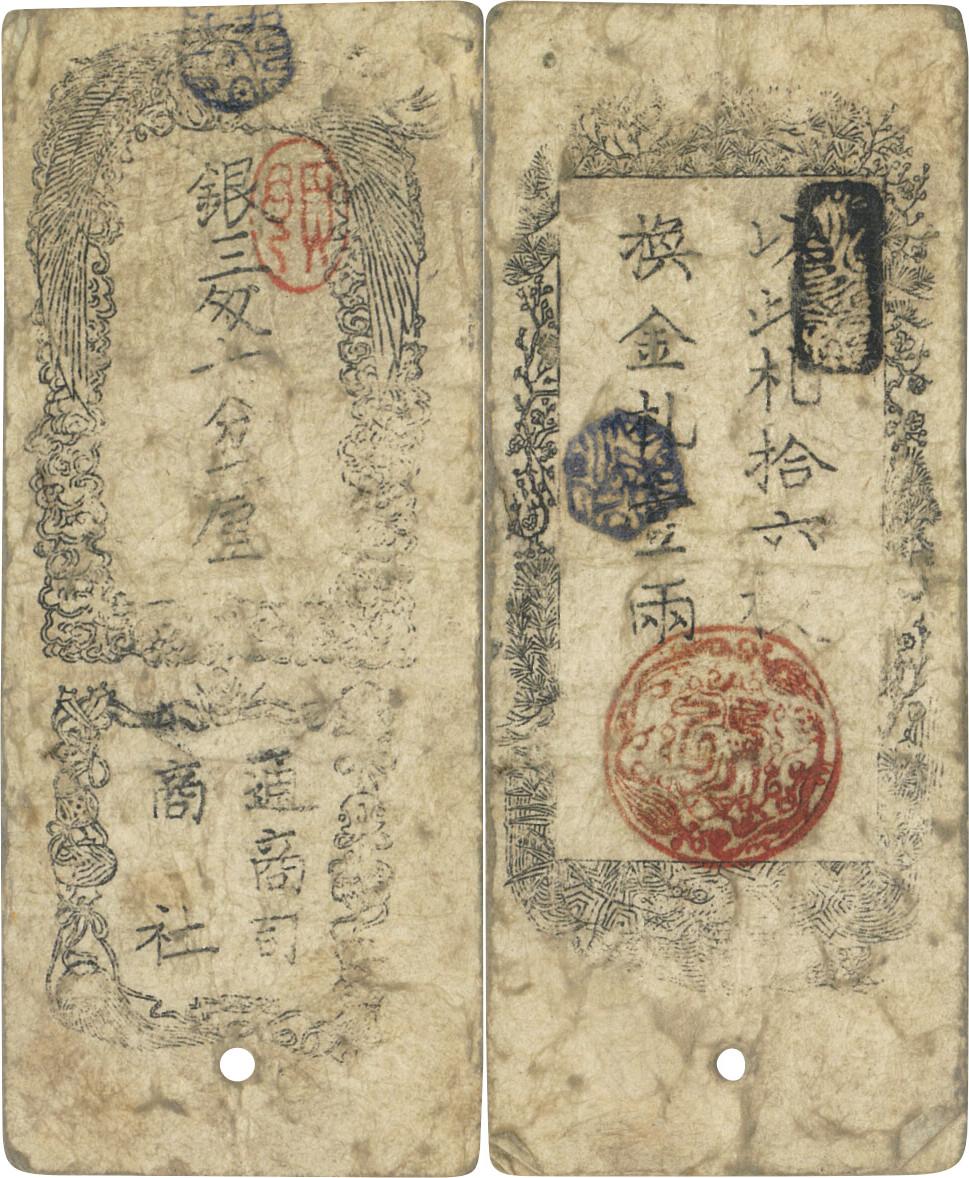 銀三匁六分一厘
通商司
商社
以此札拾六枚
換金札壹兩